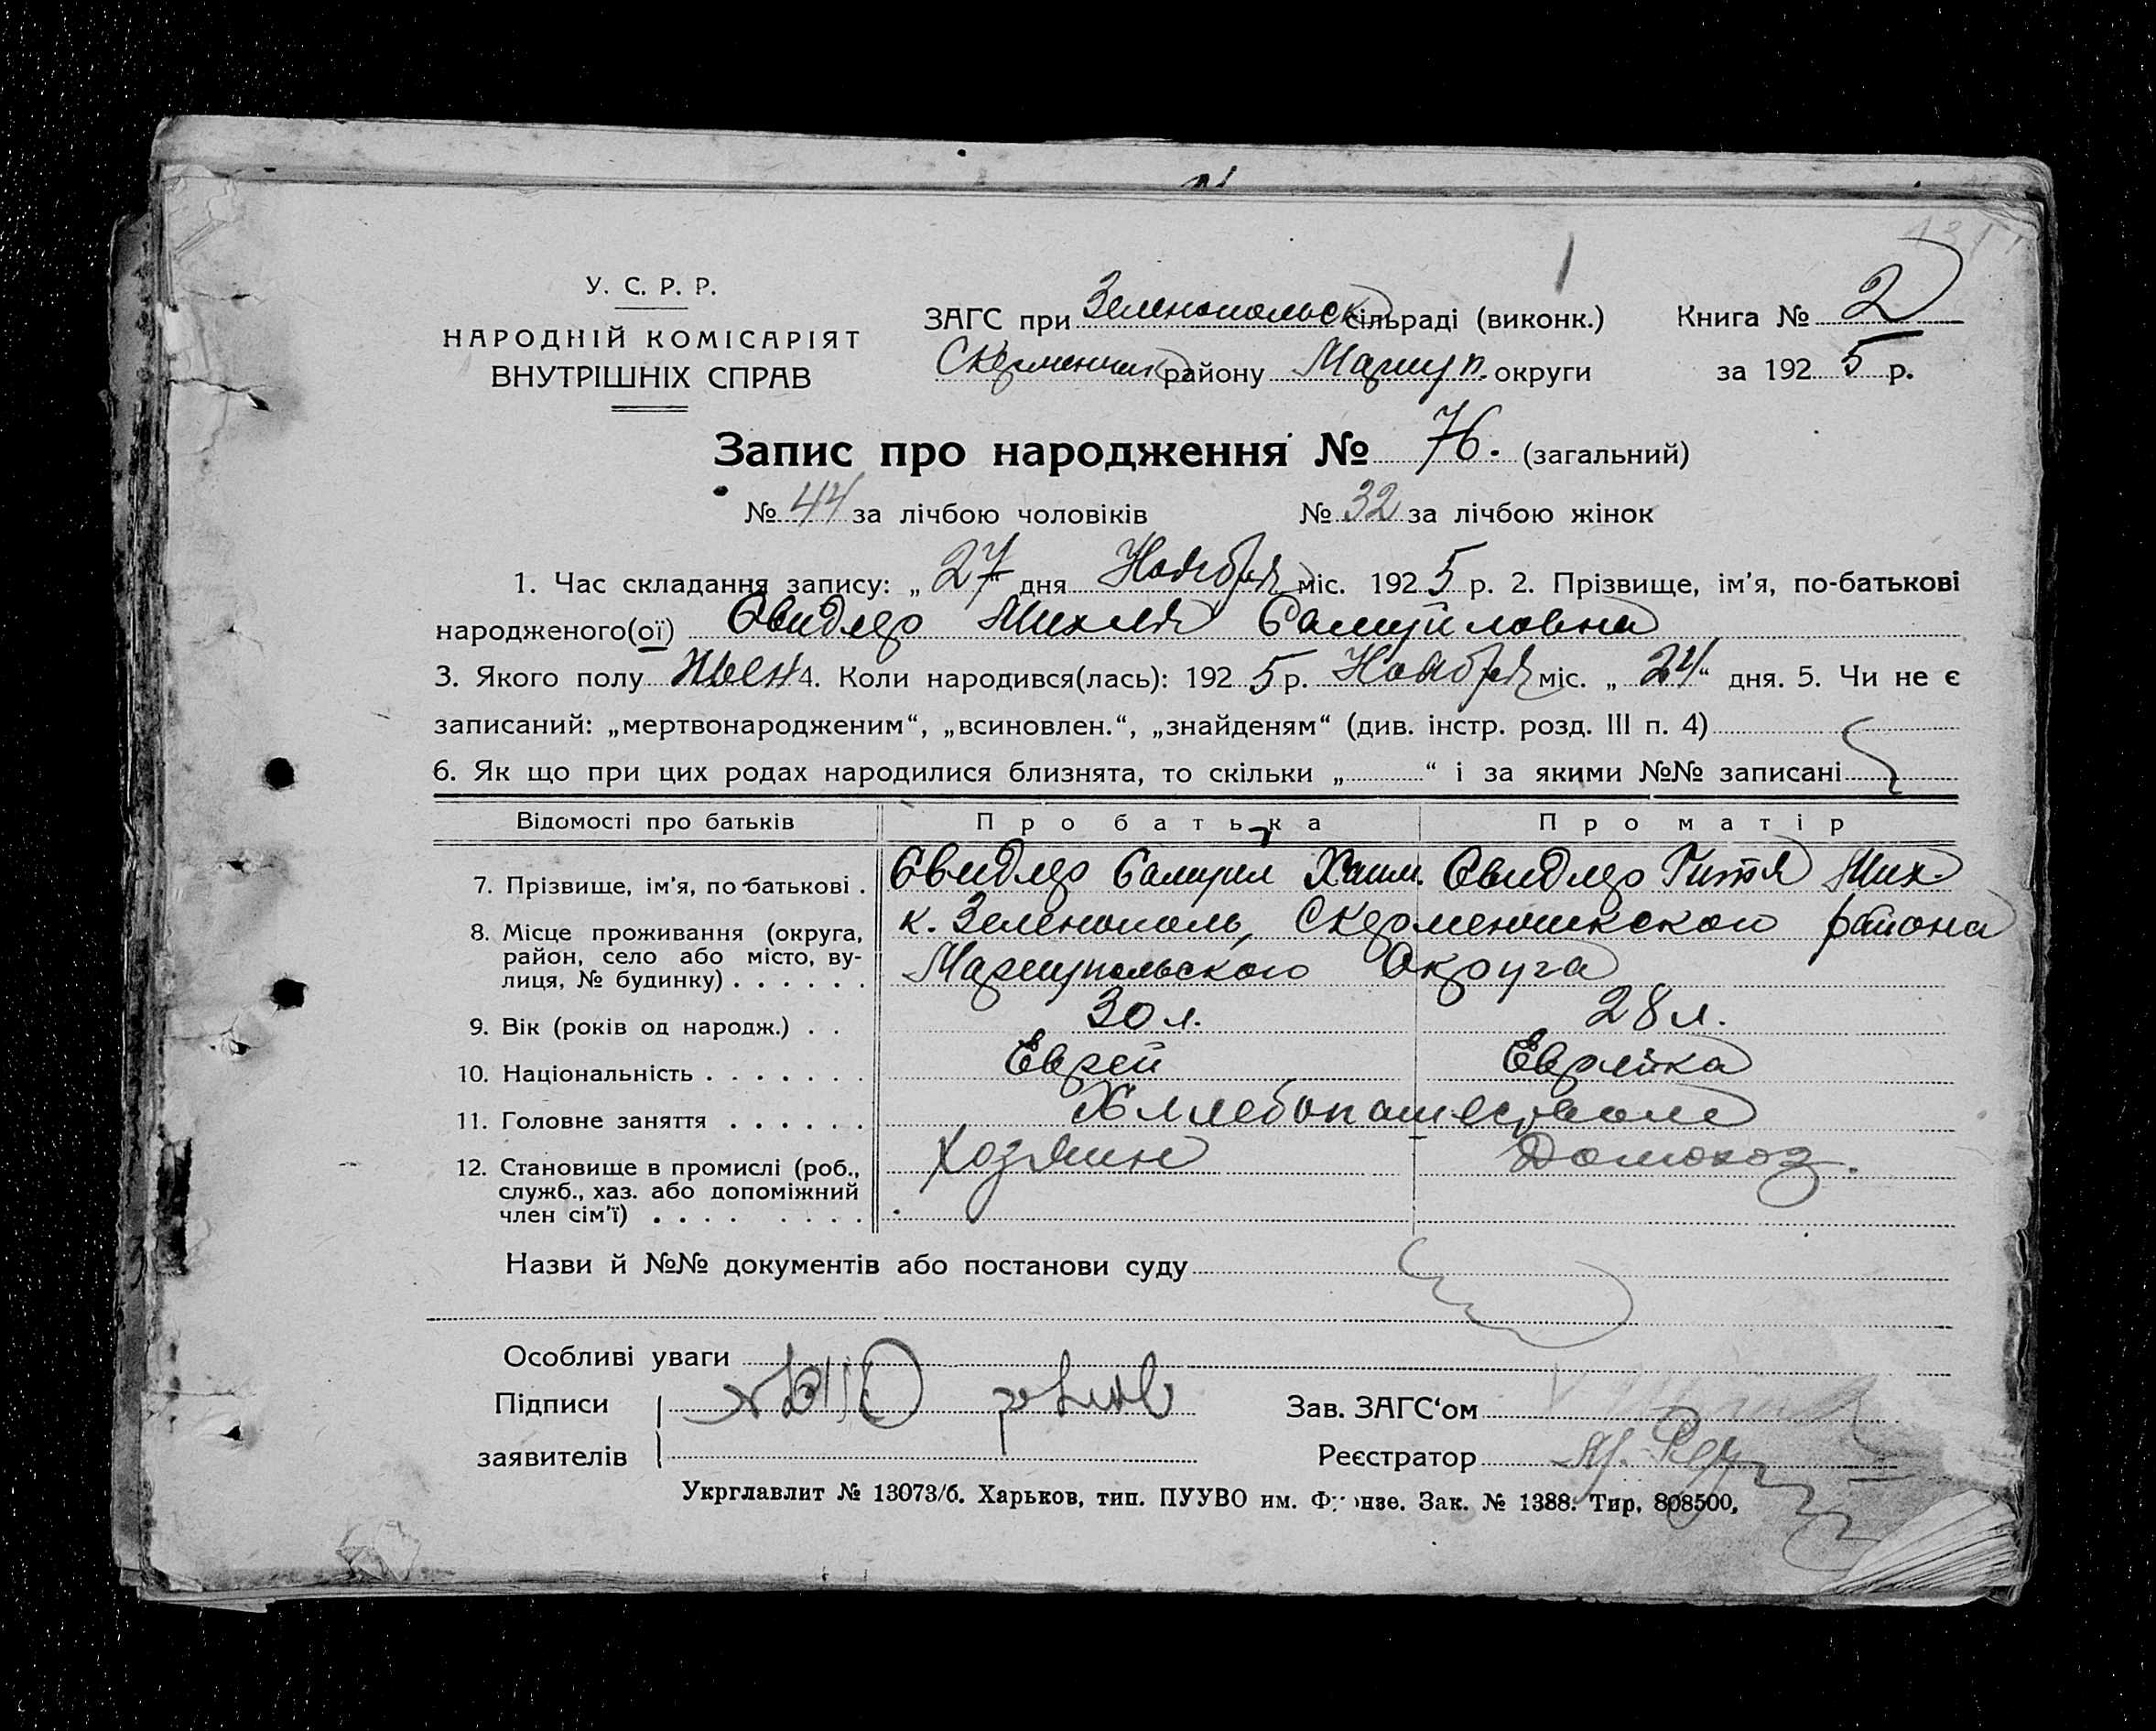 У. С. Р. Р.
НАРОДНІЙ КОМІСАРІЯТ
ВНУТРІШНІХ СПРАВ
ЗАГС при Зеленопольск сільраді (виконк.)
Скерменчик району Мариуп. округи
Книга № 2
за 1925 р.
Запис про народження № 76. (загальний)
№ 44 за лічбою чоловіків № 32 за лічбою жінок
1. Час складання запису: „27“ дня Ноября міс. 1925 р. 2. Прізвище, ім'я, по-батькові
народженого(ої) Свидлер Михля Самуйловна
3. Якого полу жен 4. Коли народився(лась): 1925 р. Ноября міс. „24“ дня. 5. Чи не є
записаний: „мертвонародженим“, „всиновлен.“, „знайденям“ (див. інстр. розд. III п. 4)
6. Як що при цих родах народилися близнята, то скільки „ “ і за якими №№ записані
Відомості про батьків Про батька Про матір
7. Прізвище, ім'я, по-батькові . Свидлер Самуил Хаим. Свидлер Гитя Мих.
8. Місце проживання (округа, район, село або місто, вулиця, № будинку) . . . . . . к. Зеленополь, Скерменчикского района
Мариупольского Округа
9. Вік (років од народж.) . . 30 л. 28 л.
10. Національність . . . . . . . Еврей Еврейка
11. Головне заняття . . . . . .
12. Становище в промислі (роб., служб., хаз. або допоміжний член сім'ї) . . . . . . . . Хозяин Домохоз.
Назви й №№ документів або постанови суду
Особливі уваги
Підписи
заявителів
Зав. ЗАГС‘ом
Реєстратор
Укрглавлит № 13073/б. Харьков, тип. ПУУВО им. Фрунзе. Зак. № 1388. Тир. 808500,